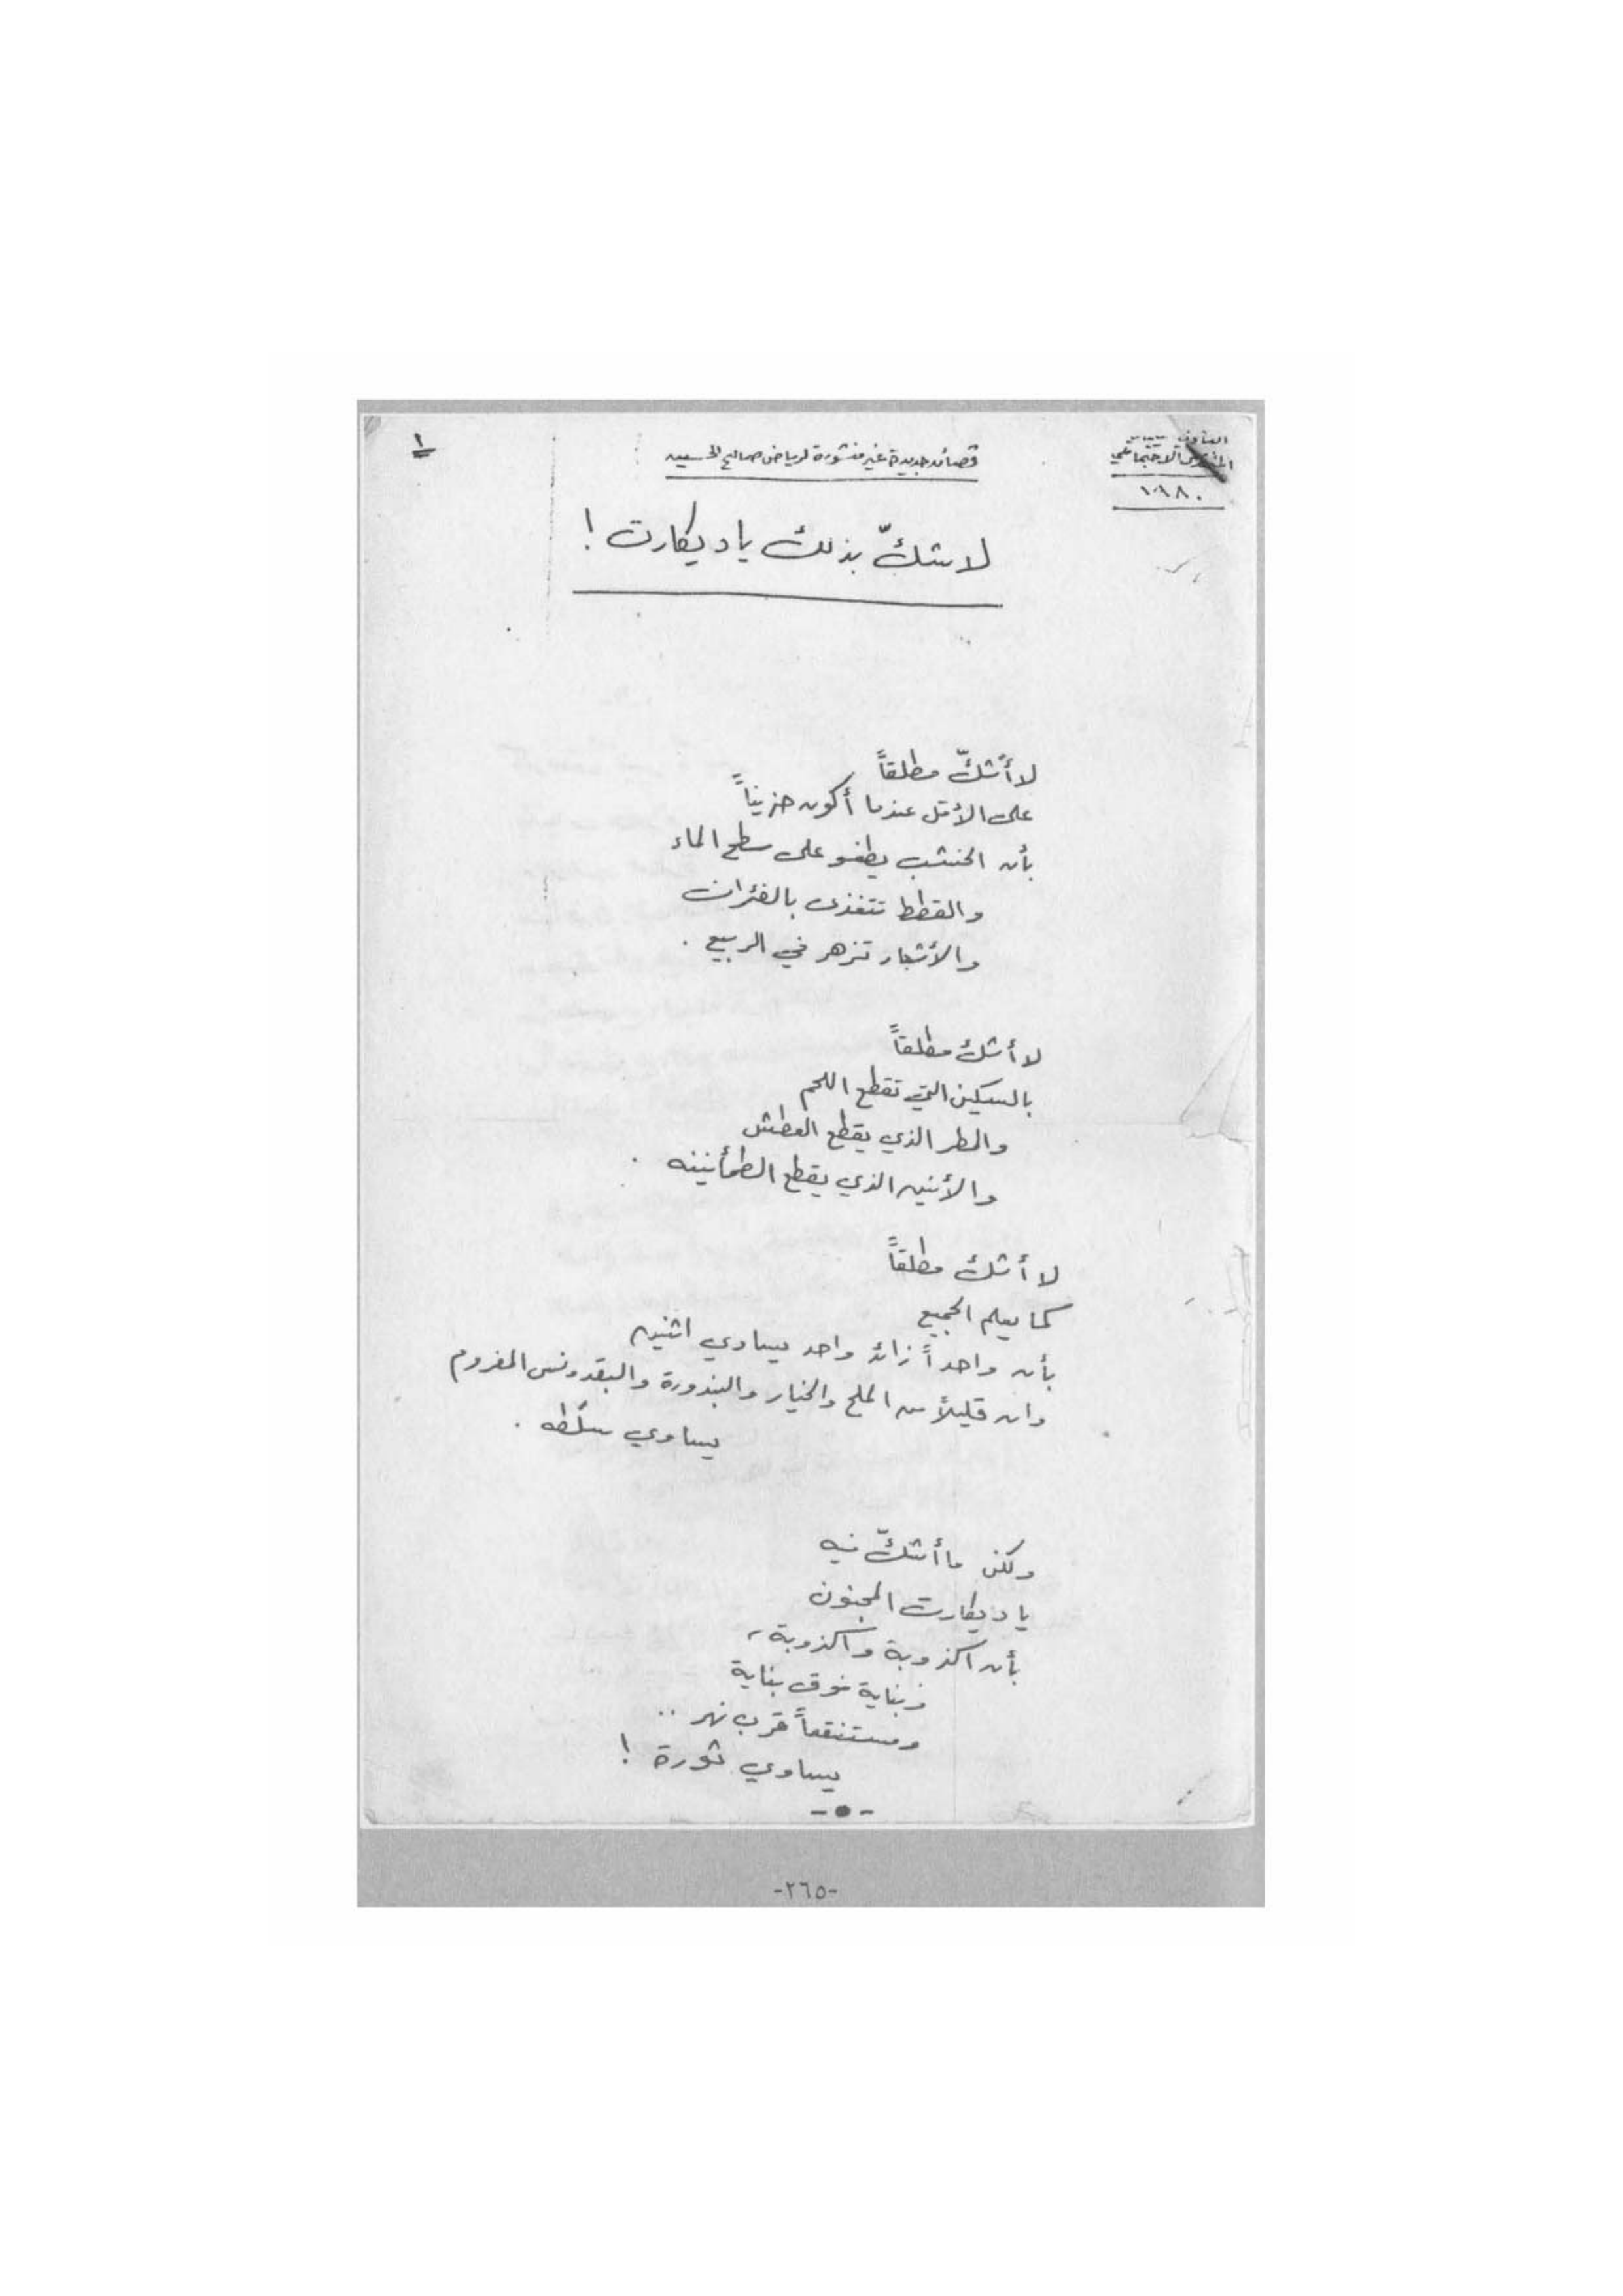 ١
قصائد جديدة غير منشورة لرياض صالح الحسين
الاجتماعي
١٩٨٠
لا شكّ بذلك يا ديكارت !
لا أشكّ مطلقاً
على الأقل عندما أكون حزيناً
بأن الخشب يطفو على سطح الماء
والقطط تتغذى بالفئران
والأشجار تزهر في الربيع .
لا أشك مطلقاً
بالسكين التي تقطع اللحم
والمطر الذي يقطع العطش
والأنين الذي يقطع الطمأنينه .
لا أشك مطلقاً
كما يعلم الجميع
بأن واحداً زائد واحد يساوي اثنين
وان قليلاً من الملح والخيار والبندورة والبقدونس المفروم
يساوي سلَطه .
ولكن ما أشكّ فيه
يا ديكارت المجنون
بأن اكذوبة واكذوبة،
وبناية فوق بناية
ومستنقعاً قرب نهر ..
يساوي ثورة !
-●-
-٢٦٥-